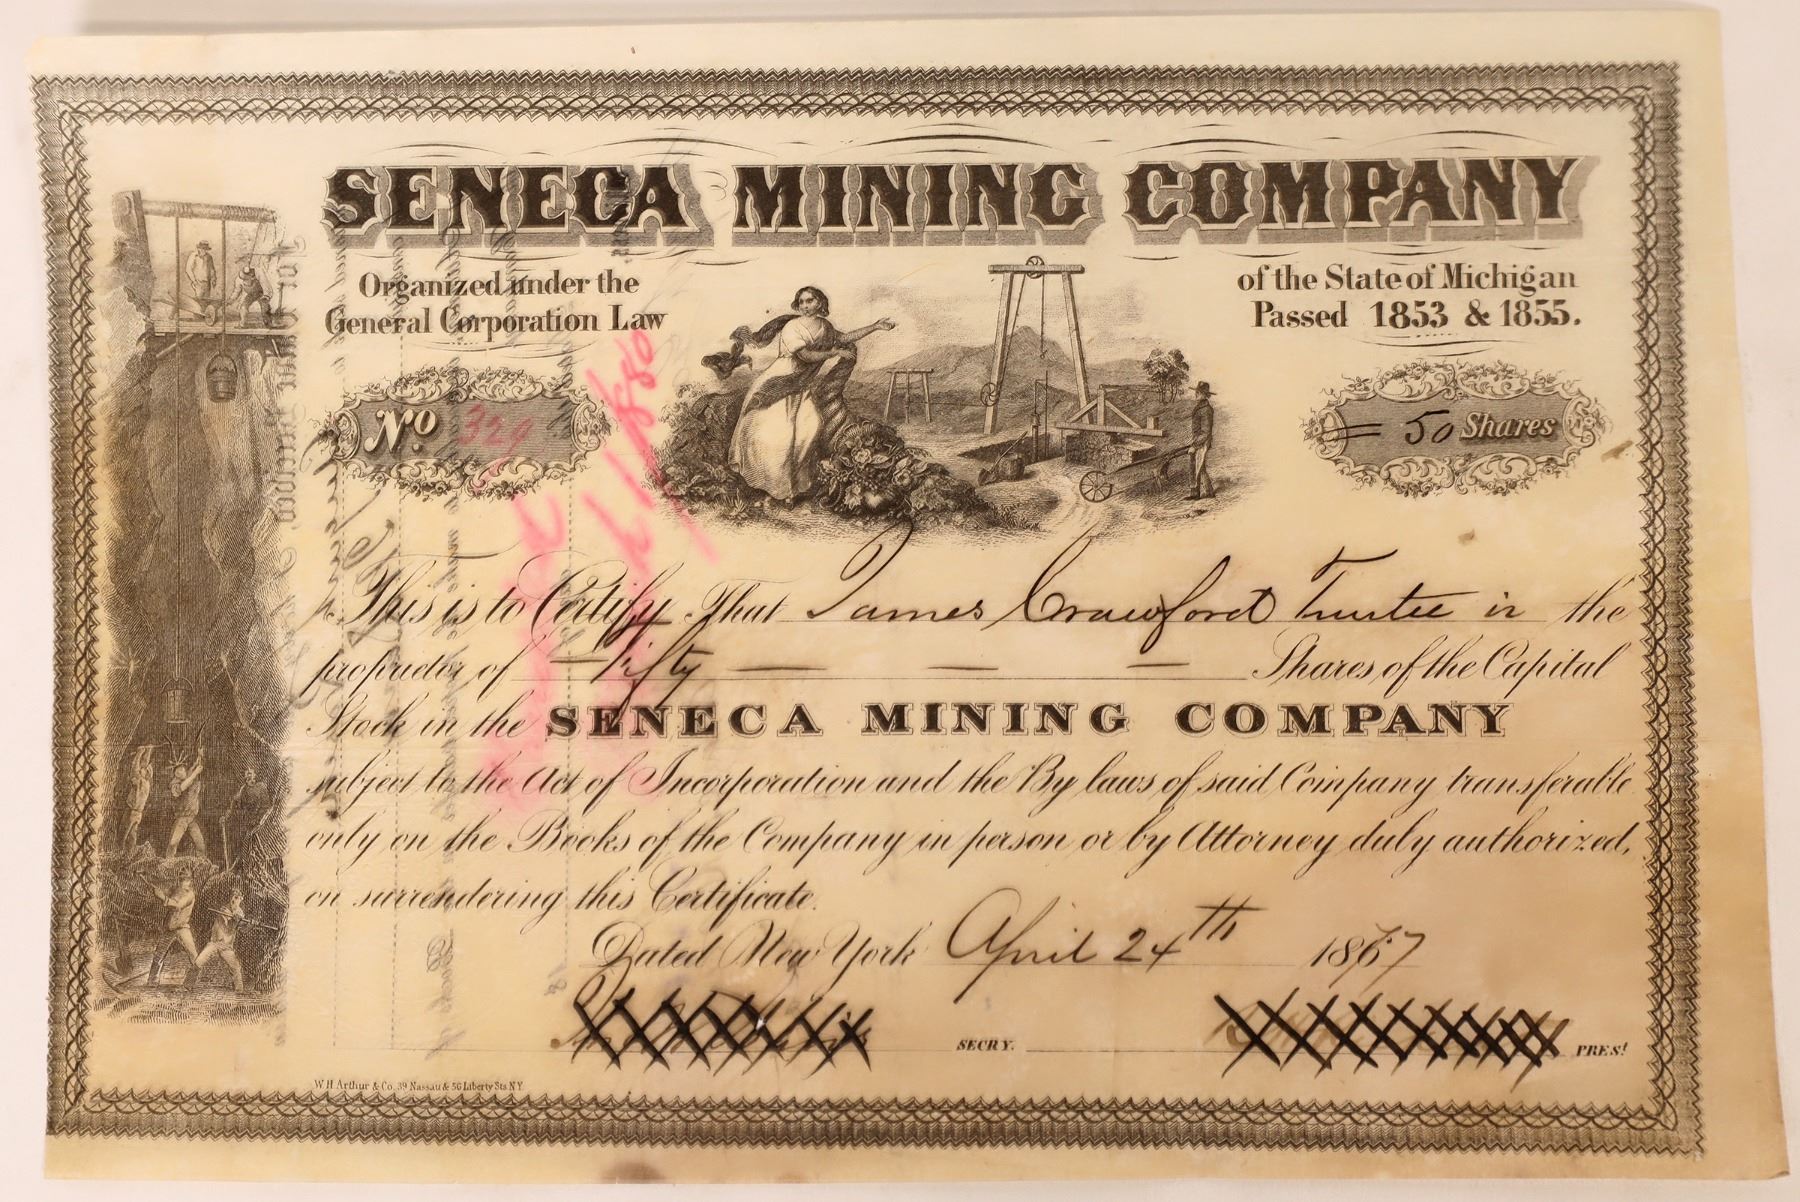 SENECA MINING COMPANY
Organized under the
General Corporation Law
of the State of Michigan
Passed 1853 & 1855.
No 329
= 50 Shares
This is to Certify That James Crawford Trustee is the
proprietor of — Fifty — — — Shares of the Capital
Stock in the SENECA MINING COMPANY
subject to the Act of Incorporation and the By laws of said Company transferable
only on the Books of the Company in person or by Attorney duly authorized,
on surrendering this Certificate.
Dated New York April 24th 1867
SECRY. PREST
W.H. Arthur & Co. 39 Nassau & 56 Liberty Sts. N.Y.